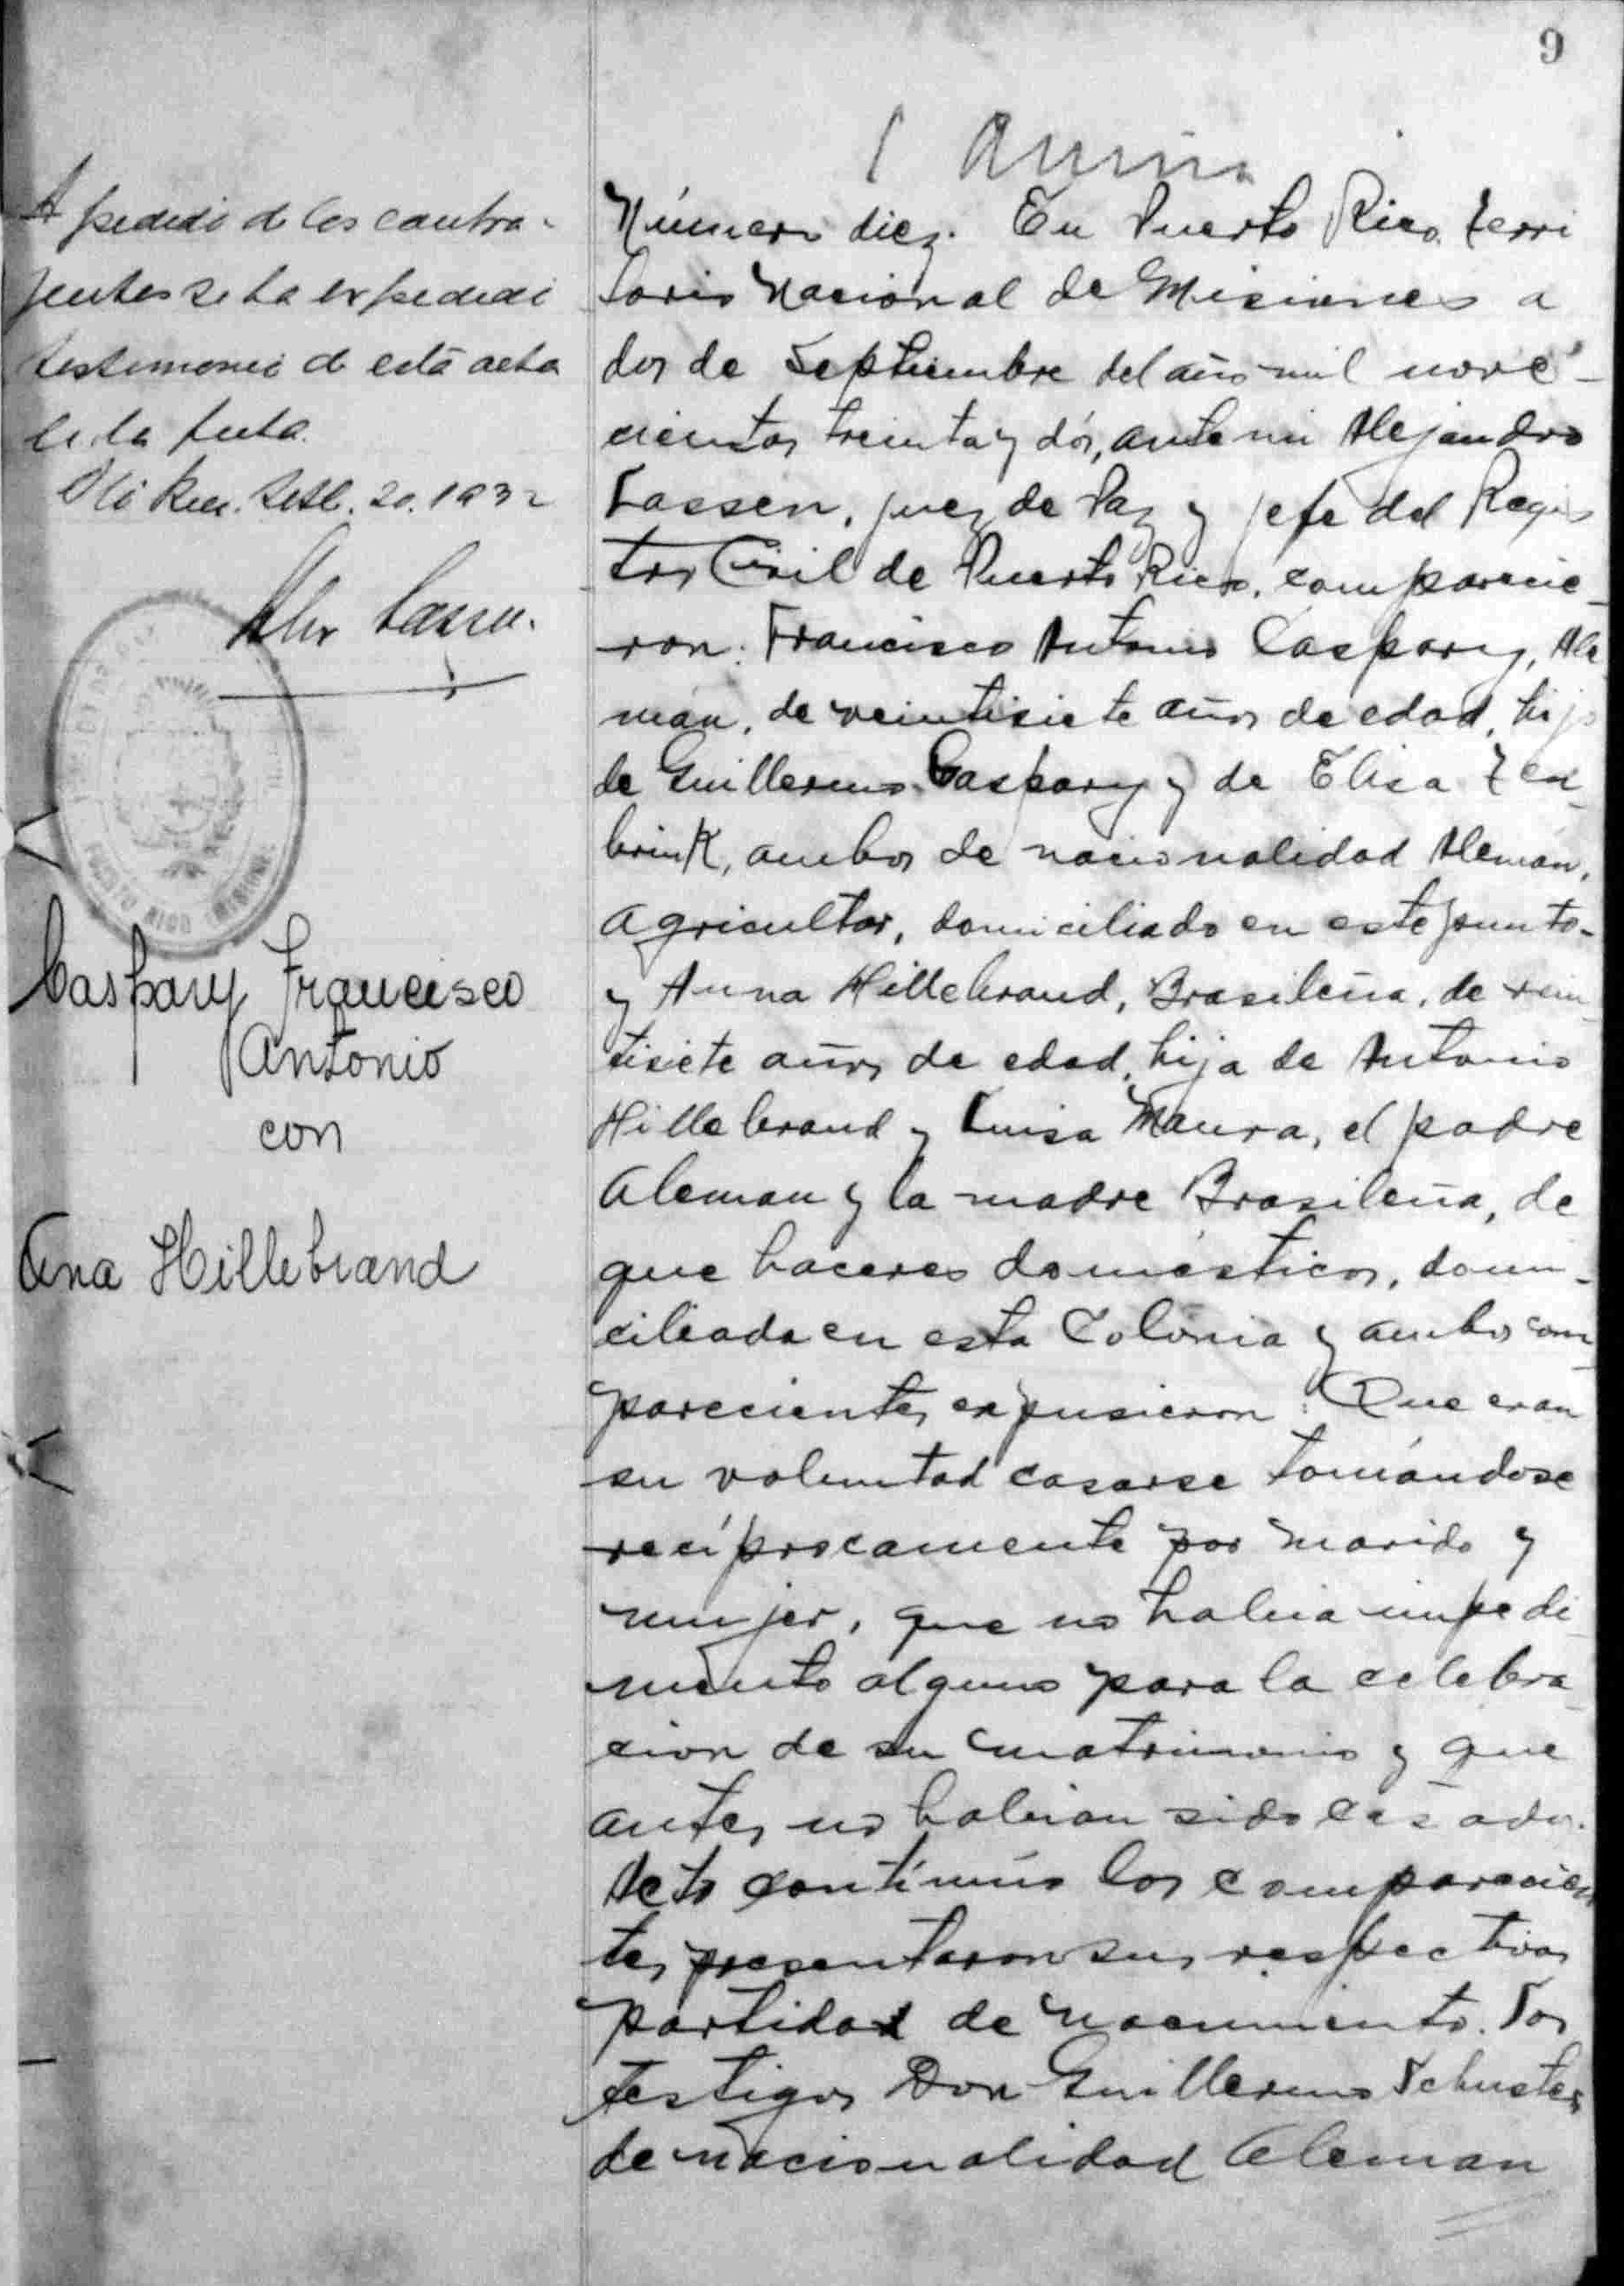 9
A pedido de los contra-
yentes se ha expedido
testimonio de esta acta
en la fecha.
Pto Rico. Setb. 20. 1932
Alex Lassen.
PUERTO RICO (MISIONES)
Caspary Francisco
Antonio
con
Ana Hillebrand
Número diez. En Puerto Rico, Terri
torio Nacional de Misiones a
dos de Septiembre del año mil nove-
cientos treinta y dós, ante mi Alejandro
Lassen, juez de Paz y jefe del Regis
tro Civil de Puerto Rico, comparecie-
ron: Francisco Antonio Caspary, Ale
mán, de veintisiete años de edad, hijo
de Guillermo Caspary y de Elisa Ten-
brink, ambos de nacionalidad Alemán,
Agricultor, domiciliado en este punto-
y Anna Hillebrand, Brasileña, de vein-
tisiete años de edad, hija de Antonio
Hillebrand y Luisa Maura, el padre
Aleman y la madre Brasileña, de
que haceres domésticos, domi-
ciliada en esta Colonia y ambos com-
parecientes expusieron: Que eran
su voluntad casarse tomándose
recíprocamente por marido y
mujer, que no habia impedi
mento alguno para la celebra
cion de su matrimonio y que
antes no habian sido casados.
Acto contínuo los comparecien
tes presentaron sus respectivas
partidas de nacimiento. Los
testigos Don Guillermo Schuster,
de nacionalidad Aleman